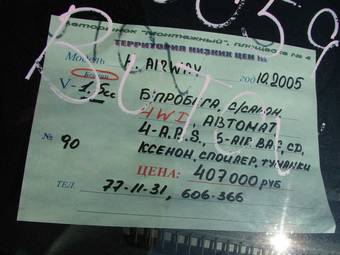 авторынок "Монтажный", площадка № 4
ТЕРРИТОРИЯ НИЗКИХ ЦЕН №1
Модель AIRWAY год 10.2005
Бензин
V - 1,5cc Б/ПРОБЕГА, С/САЛОН,
4WD, АВТОМАТ
№ 90 4-A.B.S., 5-AIR BAG, CD,
КСЕНОН, СПОЙЛЕР, ТУМАНКИ
ЦЕНА: 407000 РУБ
ТЕЛ. 77-11-31, 606-366